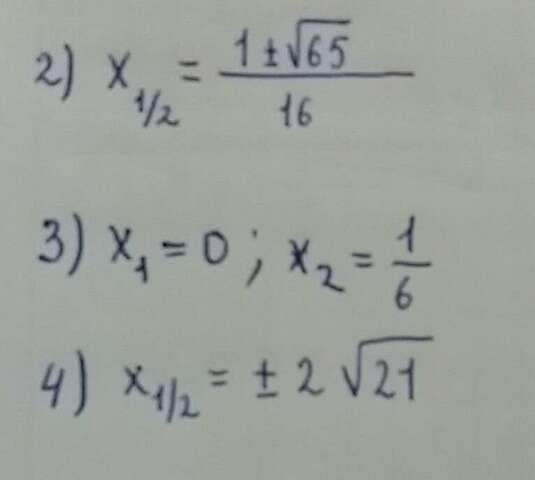 2) x_{1/2} = \frac{1 ± \sqrt{65}}{16}
3) x_1 = 0 ; x_2 = \frac{1}{6}
4) x_{1/2} = ± 2 \sqrt{21}